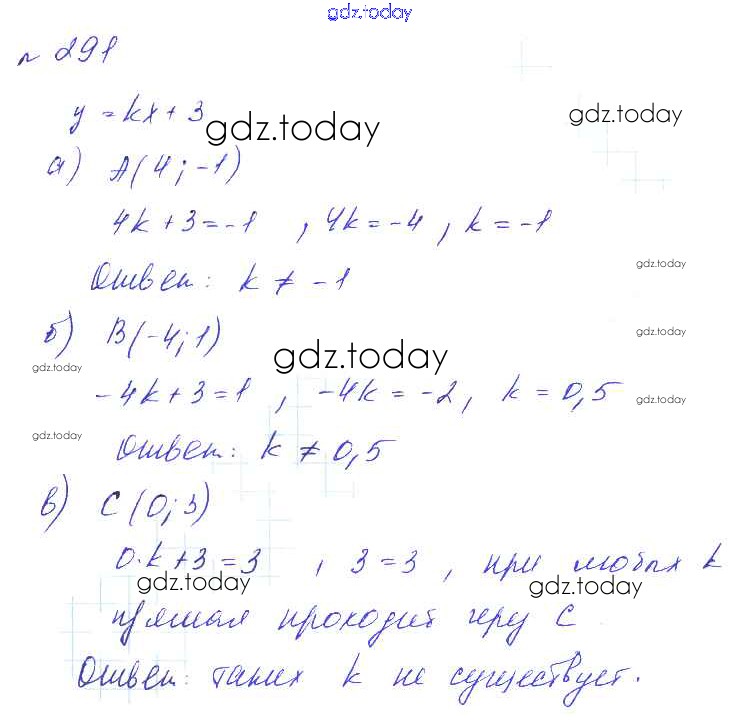 gdz.today
№ 291
y = kx + 3
gdz.today
gdz.today
а) A(4; -1)
4k + 3 = -1 , 4k = -4 , k = -1
gdz.today
Ответ: k ≠ -1
б) B(-4; 1)
gdz.today
gdz.today
gdz.today
-4k + 3 = 1 , -4k = -2, k = 0,5
gdz.today
gdz.today
Ответ: k ≠ 0,5
в) C(0; 3)
0·k + 3 = 3 , 3 = 3 , при любых k
gdz.today
gdz.today
прямая проходит через C
Ответ: таких k не существует.